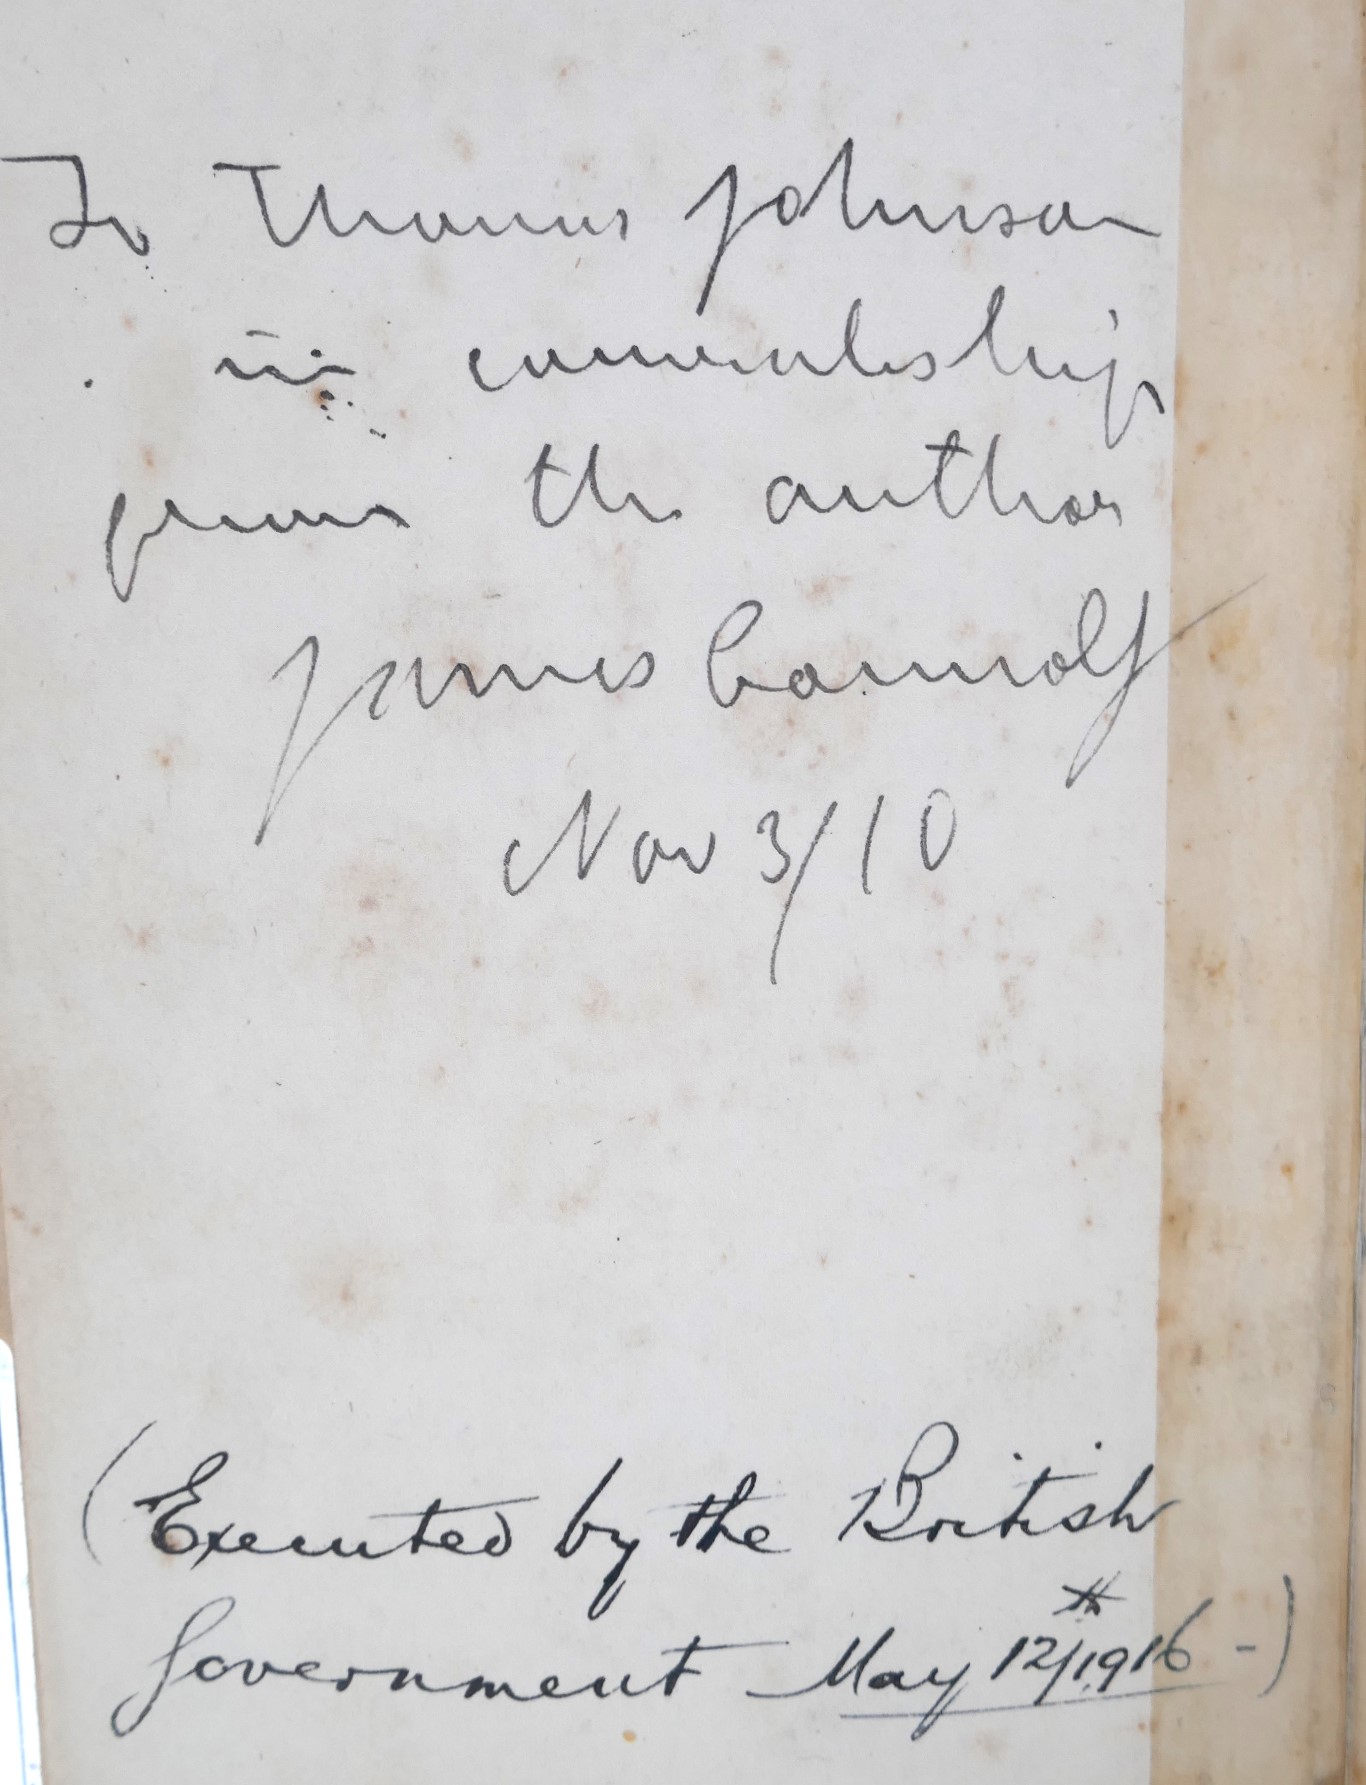 To Thomas Johnson
in comradeship
from the author
James Connolly
Nov 3/10
(Executed by the British
Government May 12th/1916 -)